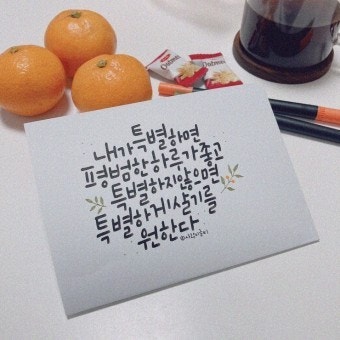 내가 특별하면
평범한 하루가 좋고
특별하지 않으면
특별하게 살기를
원한다